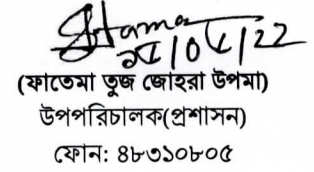 (ফাতেমা তুজ জোহরা উপমা)
উপপরিচালক(প্রশাসন)
ফোন: ৪৮৩১০৮০৫